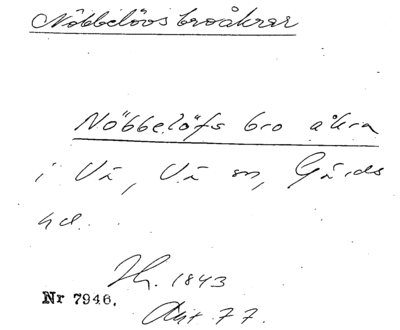 Nöbbelövs broåkrar
Nöbbelöfs bro åkra
i Vä, Vä sn, Gärds
hd.
Th. 1843
Nr 7946.
Akt 77.